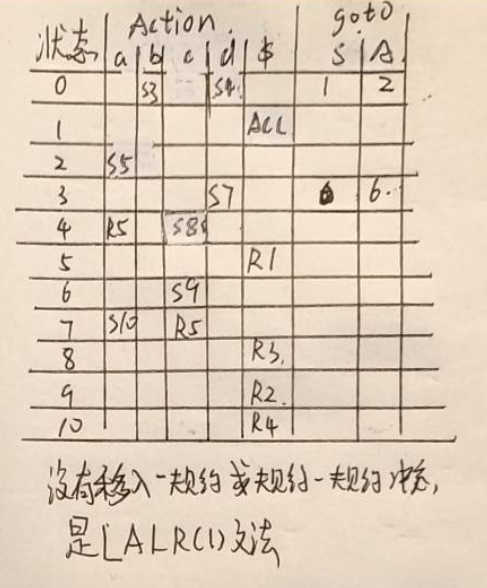 Action. goto
状态 a b c d $ S A
0 S3 S4 1 2
1 ACC
2 S5
3 S7 6.
4 R5 S8
5 R1
6 S9
7 S10 R5
8 R3.
9 R2.
10 R4
没有移入-规约或规约-规约冲突,
是LALR(1)文法